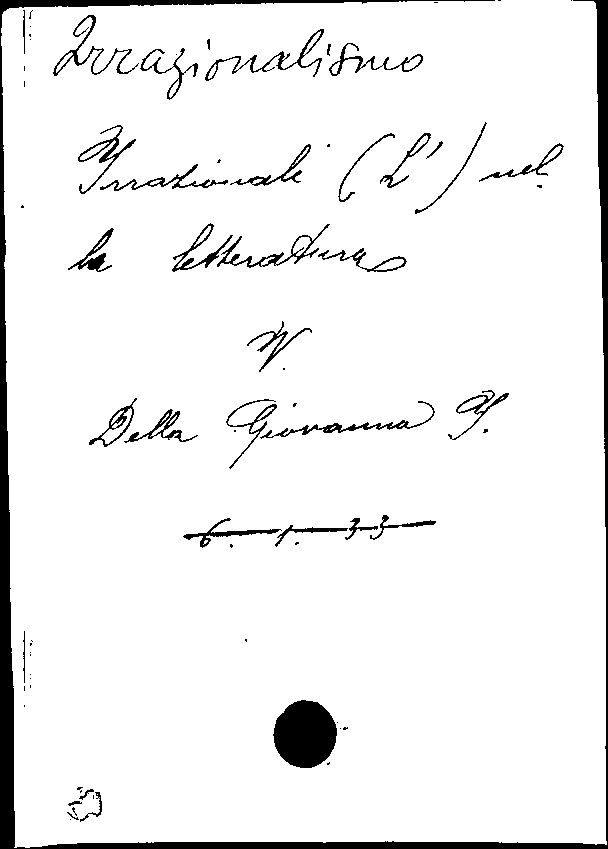 Irrazionalismo
Irrazionale (L') nel-
la letteratura
V.
Della Giovanna I.
6. 1. 33